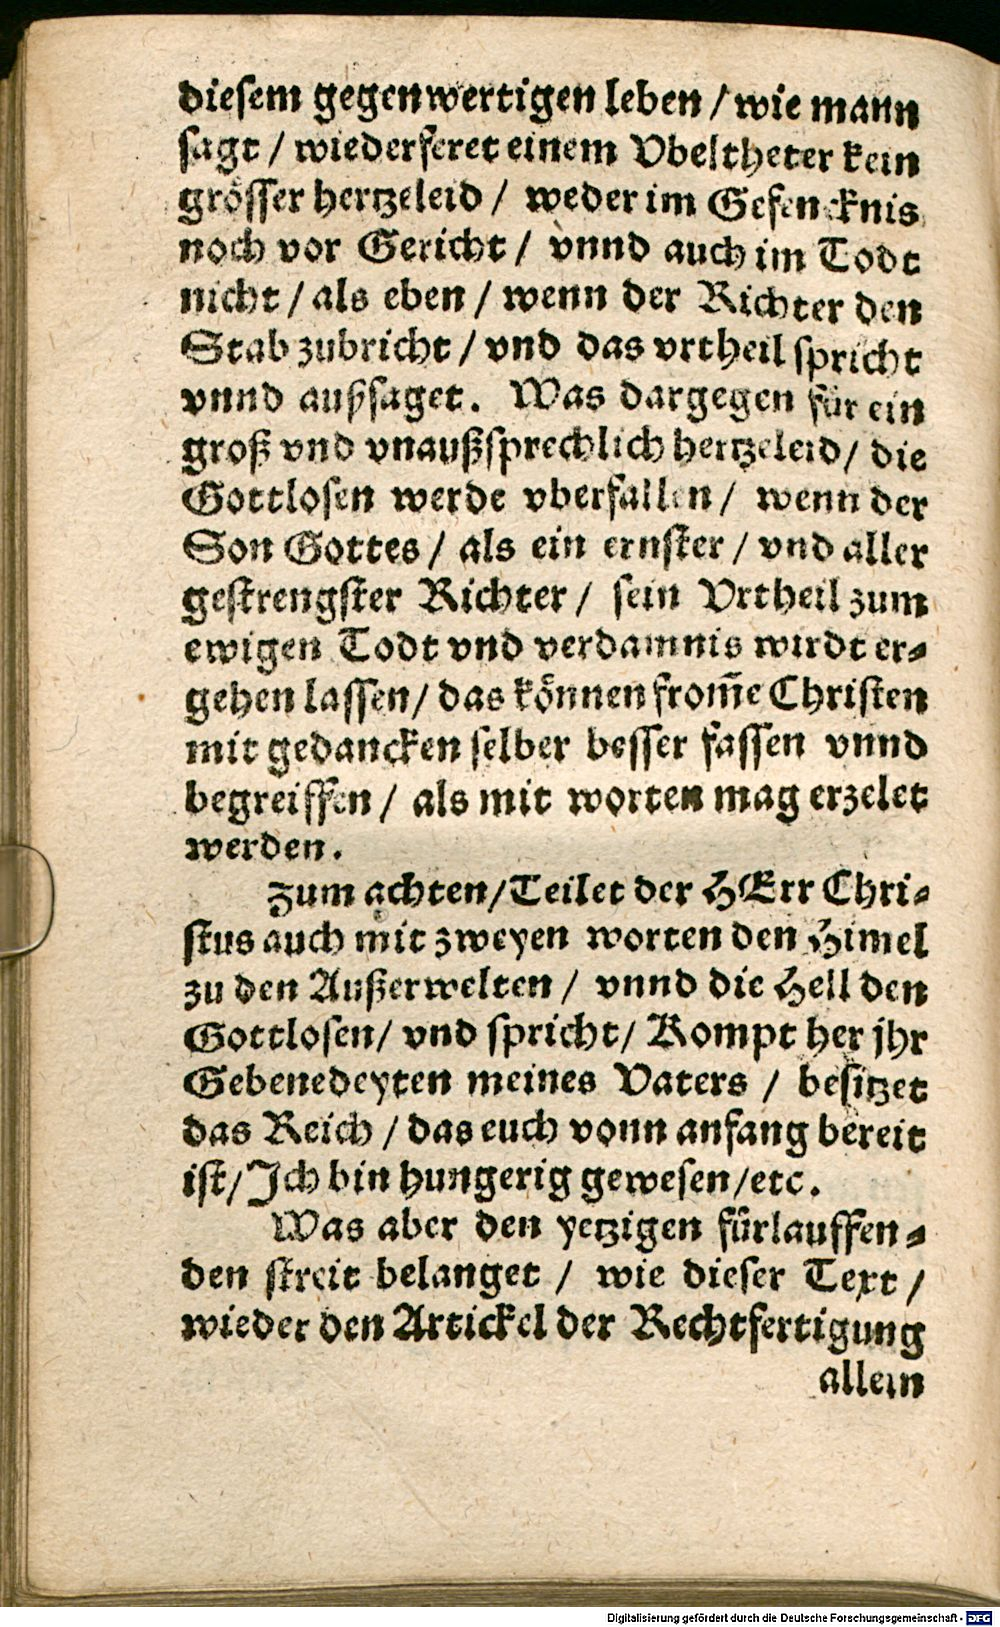 diesem gegenwertigen leben / wie mann
sagt / wiederferet einem Vbeltheter kein
grösser hertzeleid / weder im Gefencknis
noch vor Gericht / vnnd auch im Todt
nicht / als eben / wenn der Richter den
Stab zubricht / vnd das vrtheil spricht
vnnd außsaget. Was dargegen für ein
groß vnd vnaußsprechlich hertzeleid / die
Gottlosen werde vberfallen / wenn der
Son Gottes / als ein ernster / vnd aller
gestrengster Richter / sein Vrtheil zum
ewigen Todt vnd verdamnis wirdt er-
gehen lassen / das können from̃e Christen
mit gedancken selber besser fassen vnnd
begreiffen / als mit worten mag erzelet
werden.
Zum achten / Teilet der HErr Chri-
stus auch mit zweyen worten den Himel
zu den Außerwelten / vnnd die Hell den
Gottlosen / vnd spricht / Kompt her jhr
Gebenedeyten meines Vaters / besitzet
das Reich / das euch vonn anfang bereit
ist / Jch bin hungerig gewesen / etc.
Was aber den yetzigen fürlauffen-
den streit belanget / wie dieser Text /
wieder den Artickel der Rechtfertigung
allein
Digitalisierung gefördert durch die Deutsche Forschungsgemeinschaft - DFG